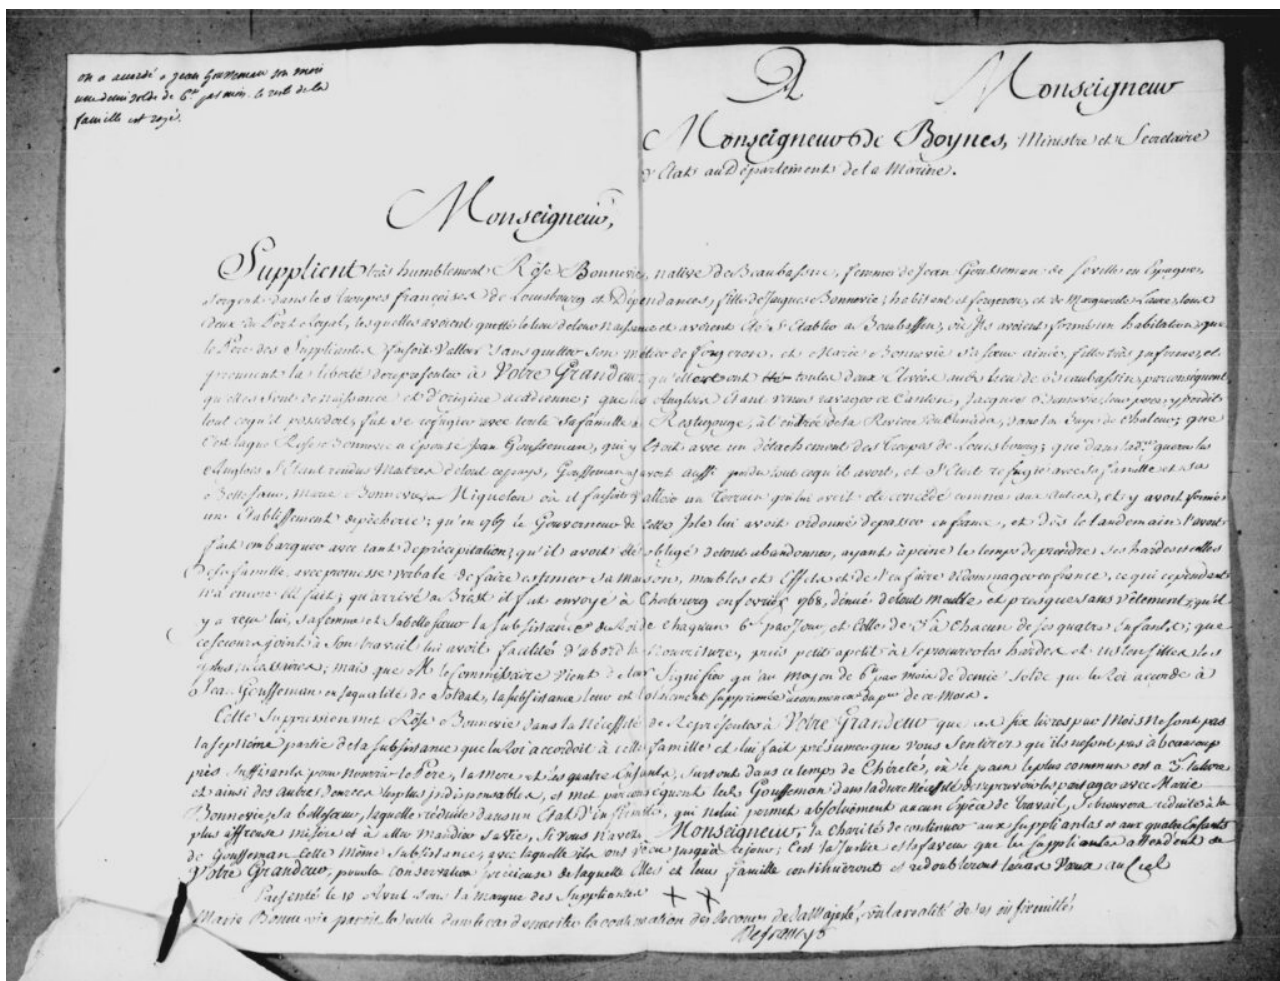 on a accordé a jean Gousseman son mari
une demi solde de 6# par mois. le reste de la
famille est rayé.
A Monseigneur
Monseigneur de Boynes, Ministre et Secretaire
d'Etat au Département de la Marine.
Monseigneur,
Supplient très humblement Rose Bonnevie, native de Beaubassine, femme de Jean Gousseman de Seville en Espagne,
Sergent dans les troupes françoises de Louisbourg et Dépendances, fille de Jacques Bonnevie, habitant et forgeron, et de Marguerite Laure, tous
deux du Port Royal, lesquelles avoient quitté le lieu de leur Naissance et avoient été s'Etablir a Beaubassin, où Ils avoient formé un habitation que
le Pere des Suppliantes faisoit valloir sans quitter son métier de forgeron, et Marie Bonnevie sa sœur ainée, fille très infirme, et
prennent la liberté de représenter à Votre Grandeur qu'elles ont toutes deux Elevées audit lieu de Beaubassin, par conséquent
qu'elles sont de naissance et d'origine acadienne; que les Anglois Etant venus ravager ce Canton, Jacques Bonnevie, leur pere, y perdit
tout ce qu'il possedoit, fut se refugier avec toute sa famille à Restigouge, à l'entrée de la Riviere du Canada, dans la Baye de Chaleur; que
C'est la que Rose Bonnevie a épousé Jean Gousseman, qui y Etoit avec un détachement des Troupes de Louisbourg; que dans la d.re guerre les
Anglois s'Etant rendus Maitres de tout ce pays, Gousseman y avoit aussi perdu tout ce qu'il avoit, et s'Etoit refugié avec sa famille et sa
Bellesœur, Marie Bonnevie, a Miquelon où il faisoit valloir un Terrain qui lui avoit été concédé comme aux autres, et y avoit formé
un Etablissement de pêcherie; qu'en 1767 le Gouverneur de cette Isle lui avoit ordonné de passer en france, et dès le landemain l'avoit
fait embarquer avec tant de précipitation, qu'il avoit été obligé de tout abandonner, ayant à peine le temps de prendre ses hardes et celles
de sa famille, avec promesse verbale de faire estimer sa maison, meubles et Effets et de l'en faire dédommager en france, ce qui cependant
n'a encore été fait; qu'arrivé a Brest il fut envoyé à Cherbourg en fevrier 1768, dénué de tout meuble et presque sans vêtement; qu'il
y a reçu lui, sa femme et sa belle sœur la subsistance du Roi de chaquun 6s par Jour, et celle de 3s à chacun de ses quatre Enfants; que
ce secours joint à son travail lui avoit facilité d'abord la Nourriture, puis petit a petit à se procurer les hardes et ustensilles les
plus nécessaires; mais que M. le Commissaire vient de leur signifier qu'au moyen de 6# par mois de demie solde que le Roi accorde à
Jean Gousseman en sa qualité de Soldat, la subsistance leur est totalement supprimée à commencer du p.er de ce Mois.
Cette suppression met Rose Bonnevie dans la Nécessité de Représenter à Votre Grandeur que ces six livres par Mois ne font pas
la septième partie de la subsistance que le Roi accordoit à cette famille et lui fait présumer que vous sentirez qu'ils ne sont pas à beaucoup
près suffisants pour nourrir le Pere, la mere et les quatre Enfants, surtout dans ce temps de Chéreté, où le pain le plus commun est a 3s la livre
et ainsi des autres denrées les plus indispensables, et met par conséquent led. Gousseman dans la dure Nécessité de ne pouvoir les partager avec Marie
Bonnevie, sa bellesœur, laquelle réduite dans un Etat d'infirmités, qui ne lui permet absolument aucun Espèce de travail, se trouvera réduite à la
plus affreuse misere et à aller mandier sa vie, si vous n'avez, Monseigneur, la charité de continuer aux suppliantes et aux quatre Enfants
de Gousseman cette même subsistance, avec laquelle ils ont vécu jusqu'à ce jour; C'est la Justice et la faveur que les suppliantes attendent de
Votre Grandeur, pour la conservation précieuse de laquelle Elles et leur famille continueront et redoubleront leurs Vœux au Ciel
Présenté le 10 Avril sous la marque des Suppliantes
Marie Bonnevie paroit la seule dans le cas de meriter la continuation des secours de sa Majesté, vu la realité de ses infirmités